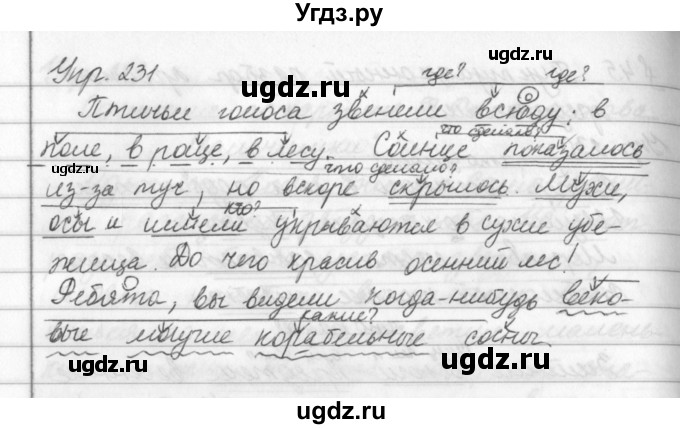 Угдз.ру
Упр. 231
ugdz.ru
где? где?
Птичьи голоса звенели всюду: в
что сделало?
поле, в роще, в лесу. Солнце показалось
ugdz.ru
что сделало?
из-за туч, но вскоре скрылось. Мухи,
ugdz.ru
кто?
осы и шмели укрываются в сухие убе-
жища. До чего красив осенний лес!
ugdz.ru
Ребята, вы видели когда-нибудь веко-
какие?
вые могучие корабельные сосны
ugdz.ru ugdz.ru
ugdz.ru